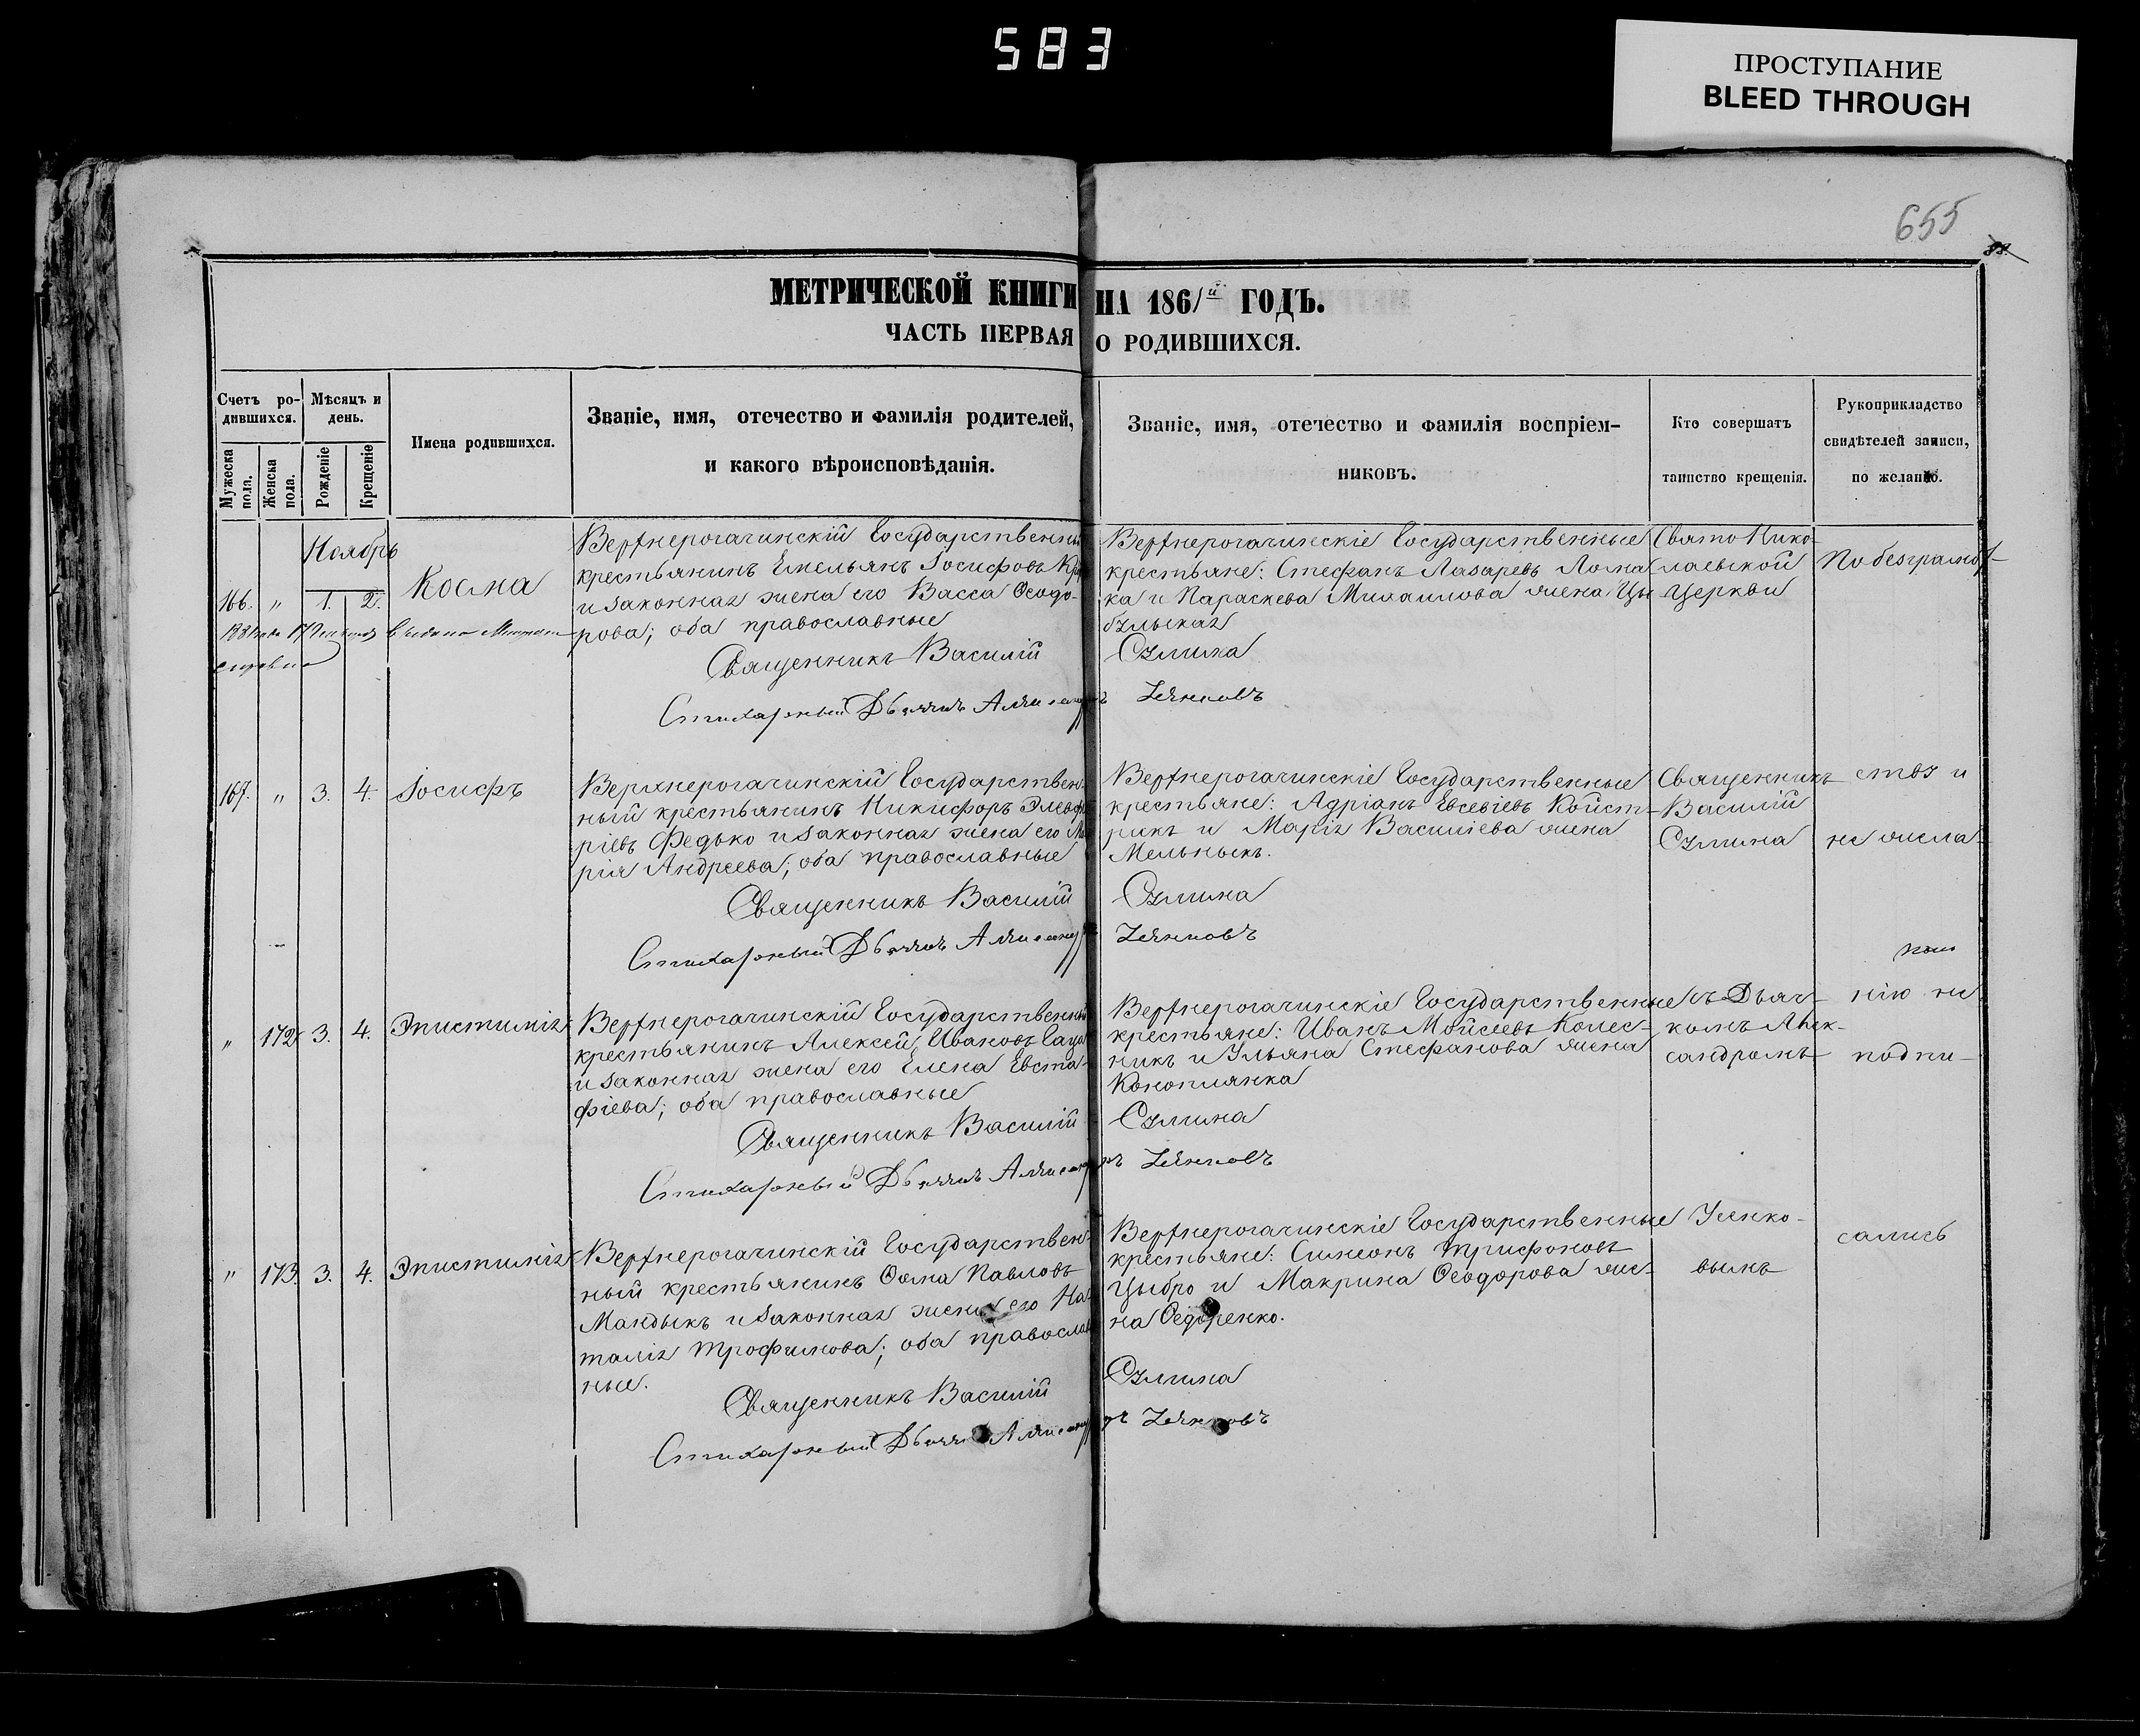 583
ПРОСТУПАНИЕ
BLEED THROUGH
655
88.
МЕТРИЧЕСКОЙ КНИГИ НА 1861й ГОДЪ.
ЧАСТЬ ПЕРВАЯ О РОДИВШИХСЯ.
Счетъ ро-
дившихся.
Мужеска пола.
Женска пола.
Мѣсяцъ и
день.
Рожденіе
Крещеніе
Имена родившихся.
Званіе, имя, отечество и фамилія родителей,
и какого вѣроисповѣданія.
Званіе, имя, отечество и фамилія воспріем-
никовъ.
Кто совершатъ
таинство крещенія.
Рукоприкладство
свидѣтелей записи,
по желанію.
Ноябрь
166. " 1. 2. Косма
Верхнерогачинскій Государственный
крестьянинъ Емельянъ Іосифовъ
и законная жена его Васса Ѳеодо-
рова; оба православные
Священникъ Василій Сулима
Стихарный Дьячекъ Александръ Усенковъ
Верхнерогачинскіе Государственные
крестьяне: Стефанъ Лазаревъ Лома
ка и Параскева Михаилова жена Цы
бульская
Свято Нико-
лаевской
Церкви
По безграмот-
167. " 3. 4. Іосифъ
Верхнерогачинскій Государствен-
ный крестьянинъ Никифоръ Элевфе
ріевъ Федько и законная жена его Ма
рія Андреева; оба православные
Священникъ Василій Сулима
Стихарный Дьячекъ Александръ Усенковъ
Верхнерогачинскіе Государственные
крестьяне: Адріанъ Евсевіевъ Койст-
рикъ и Марія Василіева жена
Мельныкъ.
Священникъ
Василій
Сулима
ству и
не жела-
" 172. 3. 4. Эпистимія
Верхнерогачинскій Государственный
крестьянинъ Алексей Ивановъ
и законная жена его Елена Евста-
фіева; оба православные
Священникъ Василій Сулима
Стихарный Дьячекъ Александръ Усенковъ
Верхнерогачинскіе Государственные
крестьяне: Иванъ Мойсеевъ Колес-
никъ и Ульяна Стефанова жена
Коноплянка
съ Дьяч-
комъ Алек-
сандромъ
нію не
подпи-
" 173. 3. 4. Эпистимія
Верхнерогачинскій Государствен-
ный крестьянинъ Ѳома Павловъ
Мандыкъ и законная жена его На-
талія Трофимова; оба православ
ные.
Священникъ Василій Сулима
Стихарный Дьячекъ Александръ Усенковъ
Верхнерогачинскіе Государственные
крестьяне: Симеонъ Трифоновъ
Цыбро и Макрина Ѳеодорова же-
на Ѳедоренко.
Усенко-
вымъ
сались